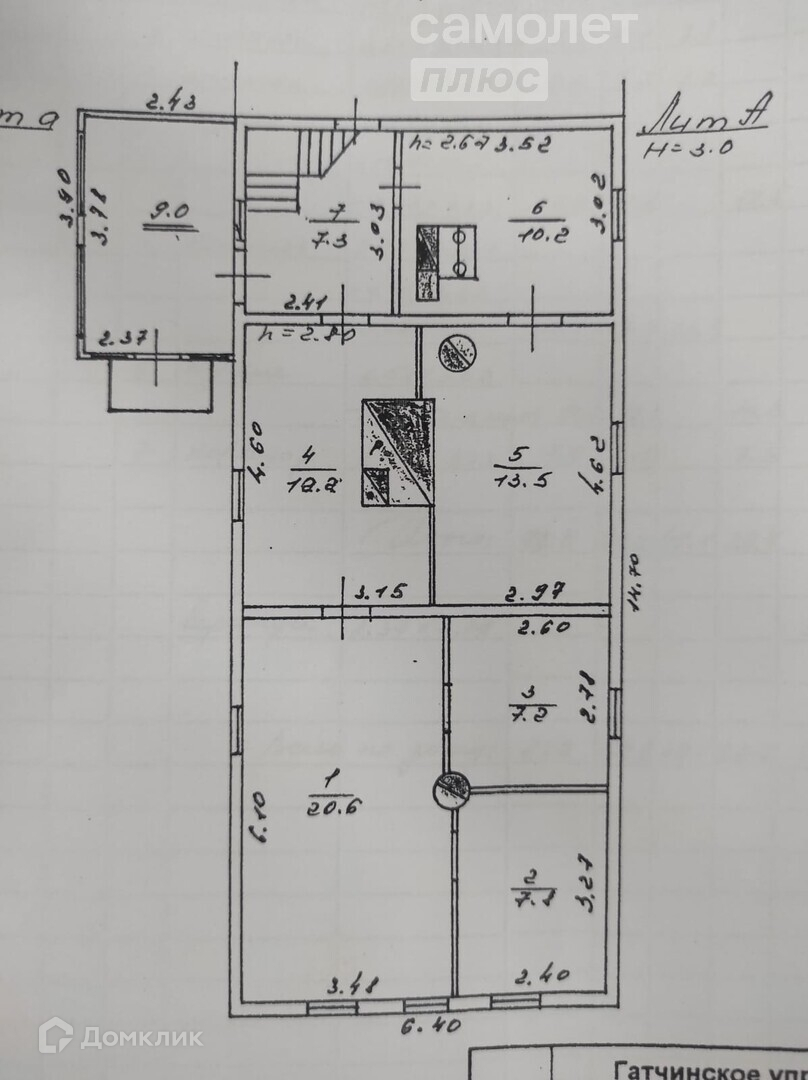 самолет
плюс
2.43
т а
Лит А
H=3.0
h=2.67
3.52
3.90
3.78
9.0
7
7.3
3.03
6
10.2
3.02
2.41
h=2.80
2.37
4.60
4
5
13.5
4.62
3.15
2.97
14.70
2.60
3
7.2
2.78
1
20.6
6.10
2
7.8
3.27
3.48
2.40
6.40
Домклик
Гатчинское упр